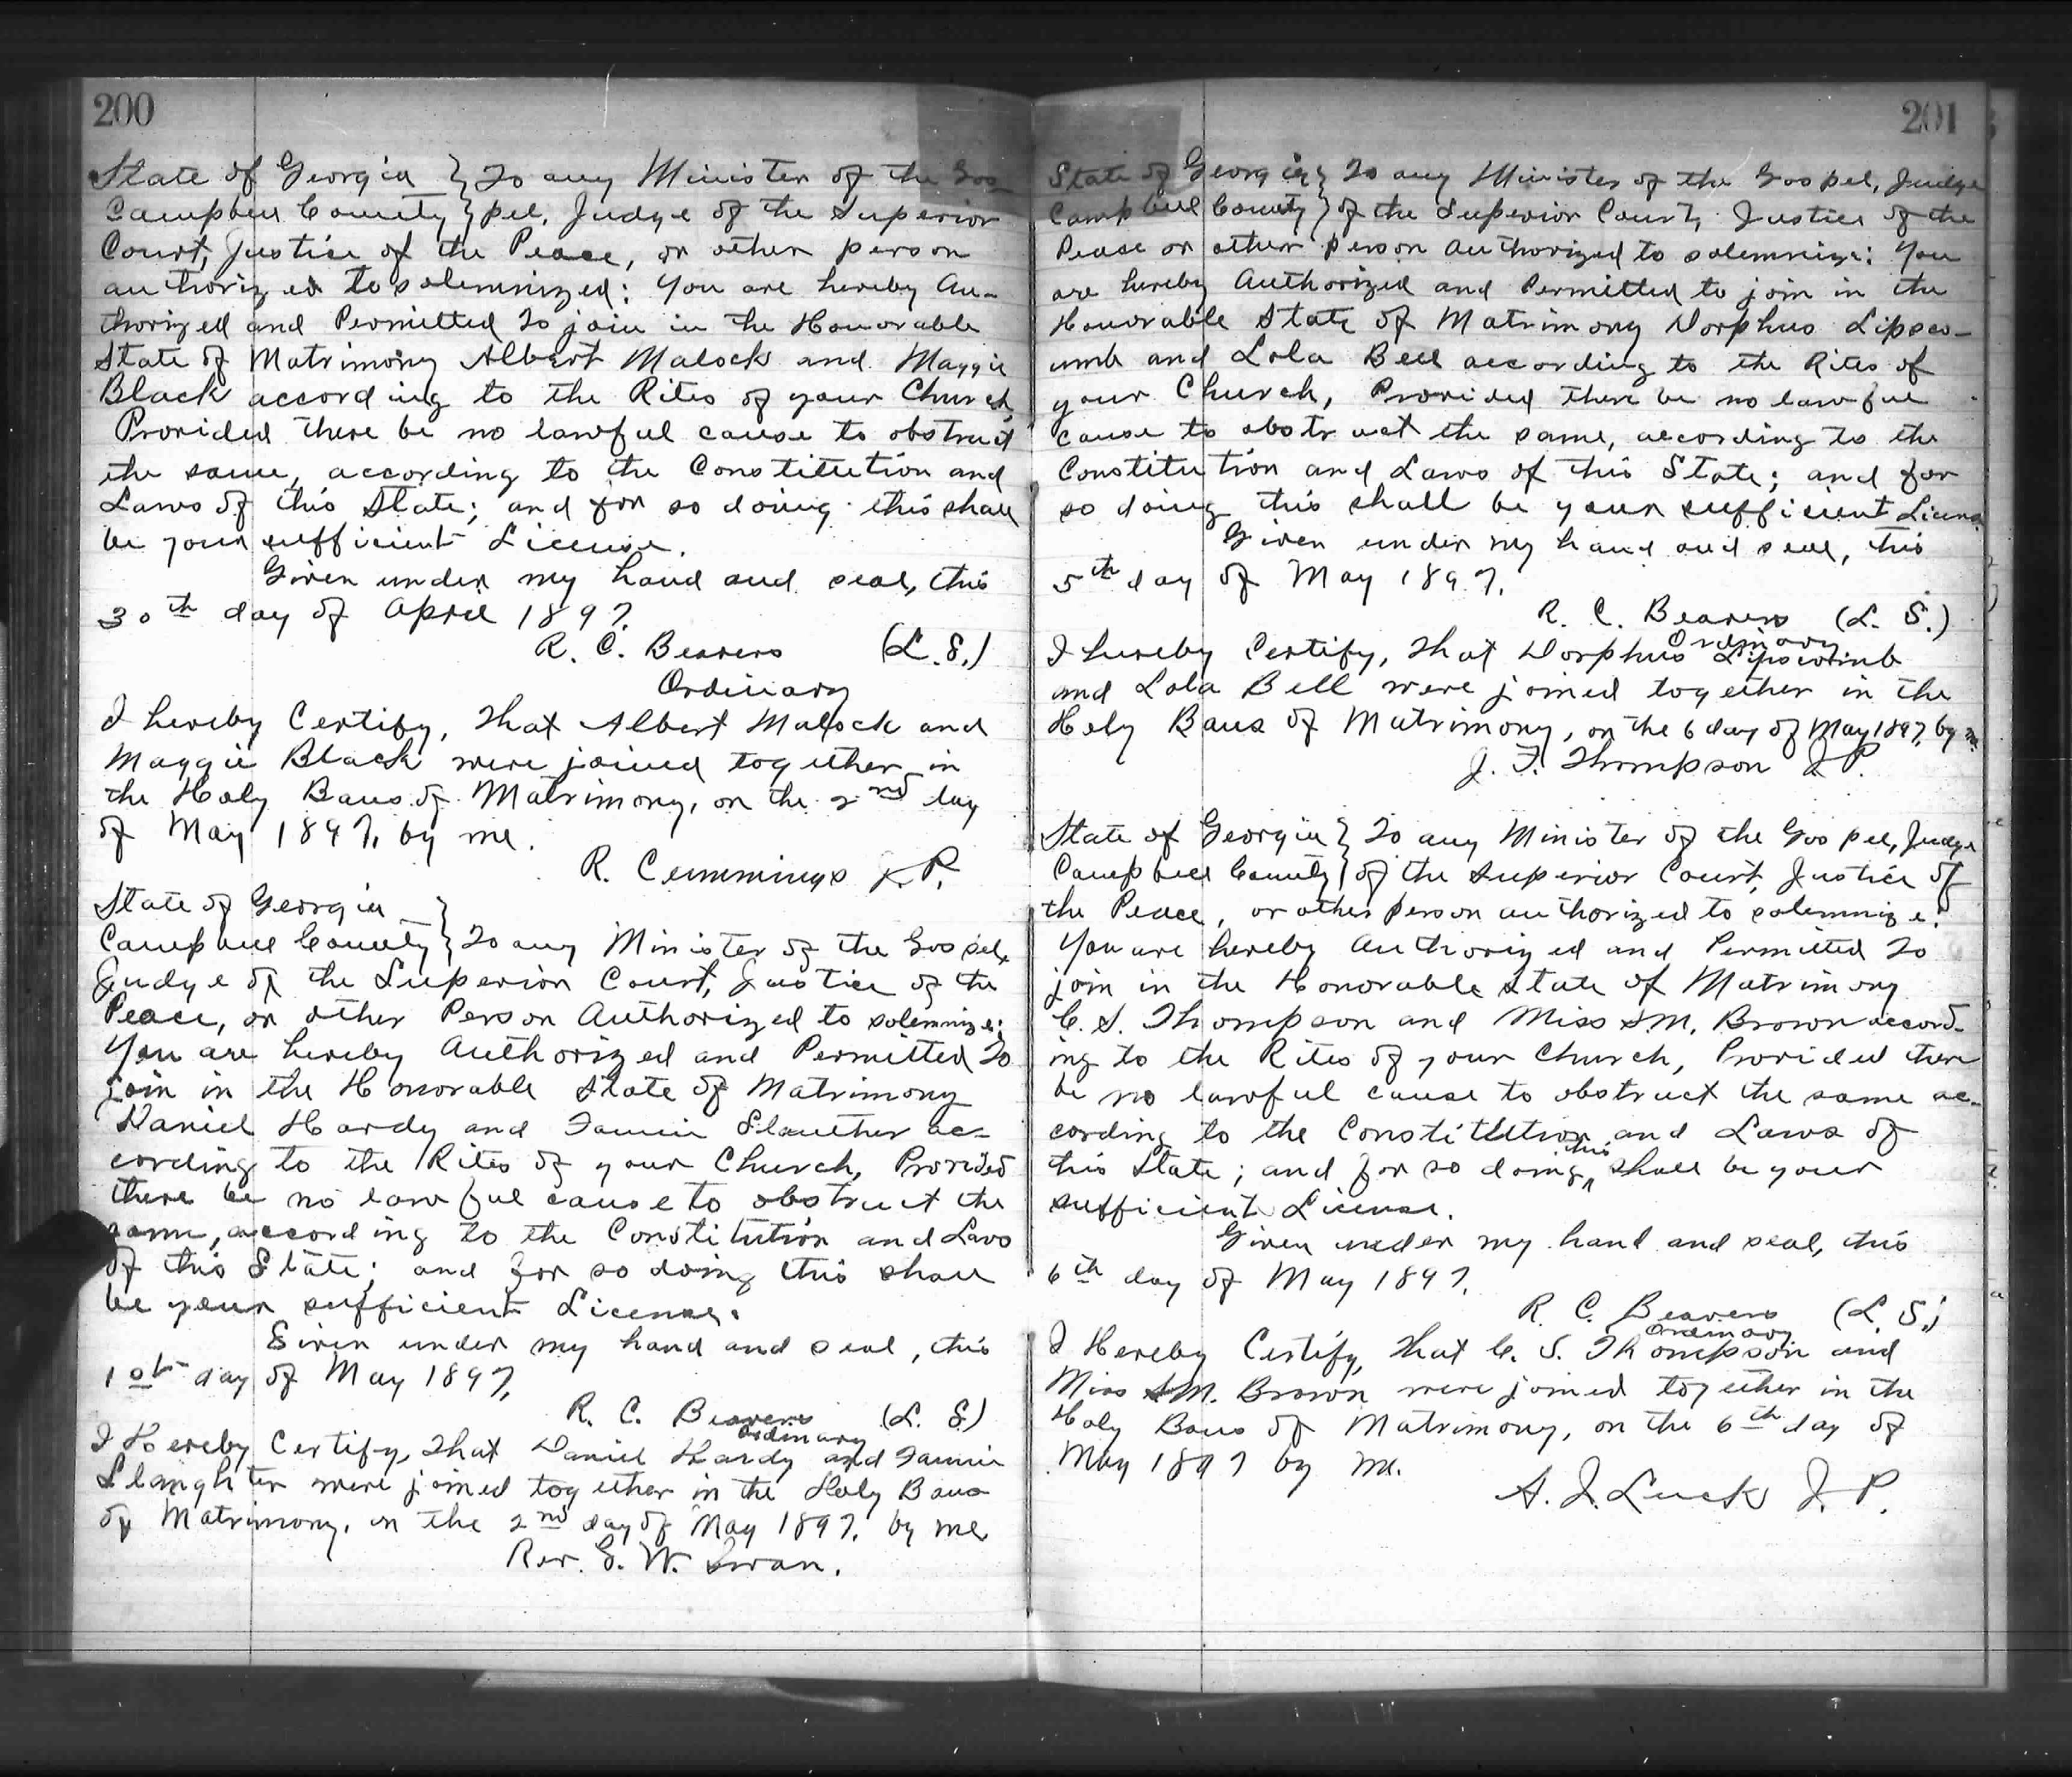 200
State of Georgia } To any Minister of the Gos-
Campbell County } pel, Judge of the Superior
Court, Justice of the Peace, or other person
authorized to solemnized: You are hereby Au-
thorized and Permitted To join in the Honorable
State of Matrimony Albert Malock and Maggie
Black according to the Rites of your Church,
Provided there be no lawful cause to obstruct
the same, according to the Constitution and
Laws of this State; and for so doing this shall
be your sufficient License.
Given under my hand and seal, this
30th day of April 1897.
R. C. Beavers (L.S.)
Ordinary
I hereby Certify, that Albert Malock and
Maggie Black were joined together in
the Holy Bans of Matrimony, on the 2nd day
of May 1897, by me.
R. Cummings J.P.
State of Georgia }
Campbell County } To any Minister of the Gospel,
Judge of the Superior Court, Justice of the
Peace, or other Person Authorized to solemnize:
You are hereby Authorized and Permitted To
join in the Honorable State of Matrimony
Daniel Hardy and Fannie Slauther ac-
cording to the Rites of your Church, Provided
there be no lawful cause to obstruct the
same, according to the Constitution and Laws
of this State; and for so doing this shall
be your sufficient License.
Given under my hand and seal, this
1st day of May 1897.
R. C. Beavers (L. S.)
Ordinary
I Hereby Certify, that Daniel Hardy and Fannie
Slaughter were joined together in the Holy Bans
of Matrimony, on the 2nd day of May 1897, by me
Rev. G. W. Swan.
201
State of Georgia } To any Minister of the Gospel, Judge
Campbell County } of the Superior Court, Justice of the
Peace or other person authorized to solemnize: You
are hereby Authorized and Permitted to join in the
Honorable State of Matrimony Dorphus Lipsco-
umb and Lola Bell according to the Rites of
your Church, Provided there be no lawful
cause to obstruct the same, according to the
Constitution and Laws of this State; and for
so doing this shall be your sufficient License
Given under my hand and seal, this
5th day of May 1897.
R. C. Beavers (L. S.)
Ordinary
I hereby Certify, that Dorphus Lipscoumb
and Lola Bell were joined together in the
Holy Bans of Matrimony, on the 6 day of May 1897, by me
J. F. Thompson J P.
State of Georgia } To any Minister of the Gospel, Judge
Campbell County } of the Superior Court, Justice of
the Peace, or other person authorized to solemnize:
You are hereby Authorized and Permitted To
join in the Honorable State of Matrimony
C. S. Thompson and Miss S.M. Brown accord-
ing to the Rites of your Church, Provided there
be no lawful cause to obstruct the same ac-
cording to the Constitution and Laws of
this State; and for so doing this shall be your
sufficient License.
Given under my hand and seal, this
6th day of May 1897.
R. C. Beavers (L. S.)
Ordinary
I Hereby Certify, that C. S. Thompson and
Miss S.M. Brown were joined together in the
Holy Bans of Matrimony, on the 6th day of
May 1897 by me.
A. J. Luck J. P.